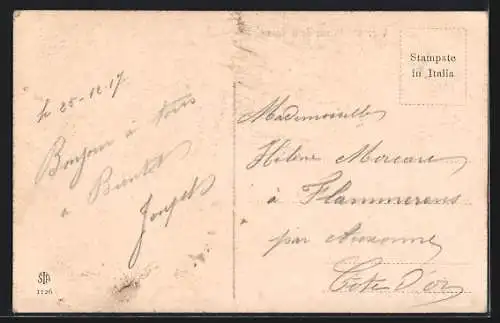 Stampate
in Italia
le 25-12-17
Bonjour à tous
à Bientot
Mademoiselle
Hélène Mercare
à Flammerens
par Auxonne
Côte d'or
STA
1226